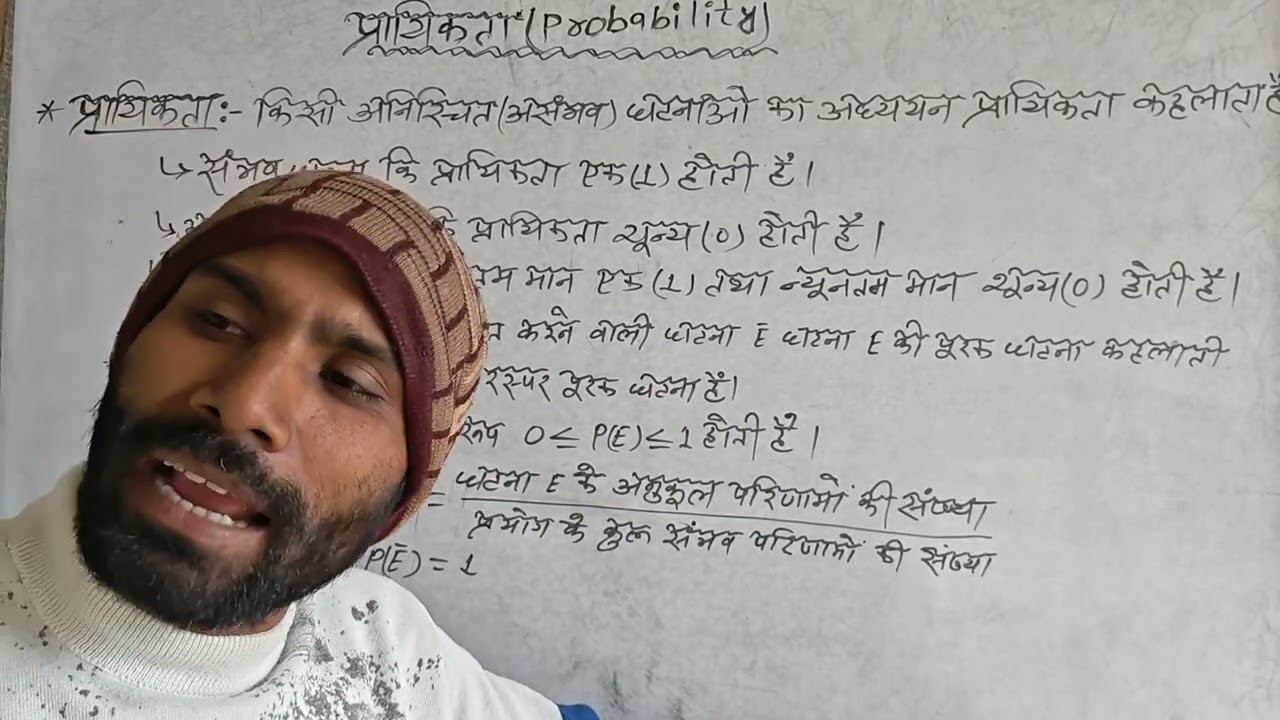 प्रायिकता (Probability)
* प्रायिकता :- किसी अनिश्चित (असंभव) घटनाओं का अध्ययन प्रायिकता कहलाता है
↳ संभव कि प्रायिकता एक (1) होती हैं।
↳ कि प्रायिकता शून्य (0) होती हैं।
मान एक (1) तथा न्यूनतम मान शून्य (0) होती हैं।
करने वाली घटना Ē घटना E की पूरक घटना कहलाती
पूरक घटना हैं।
0 ≤ P(E) ≤ 1 होती हैं।
= घटना E के अनुकूल परिणामों की संख्या
प्रयोग के कुल संभव परिणामों की संख्या
P(Ē) = 1